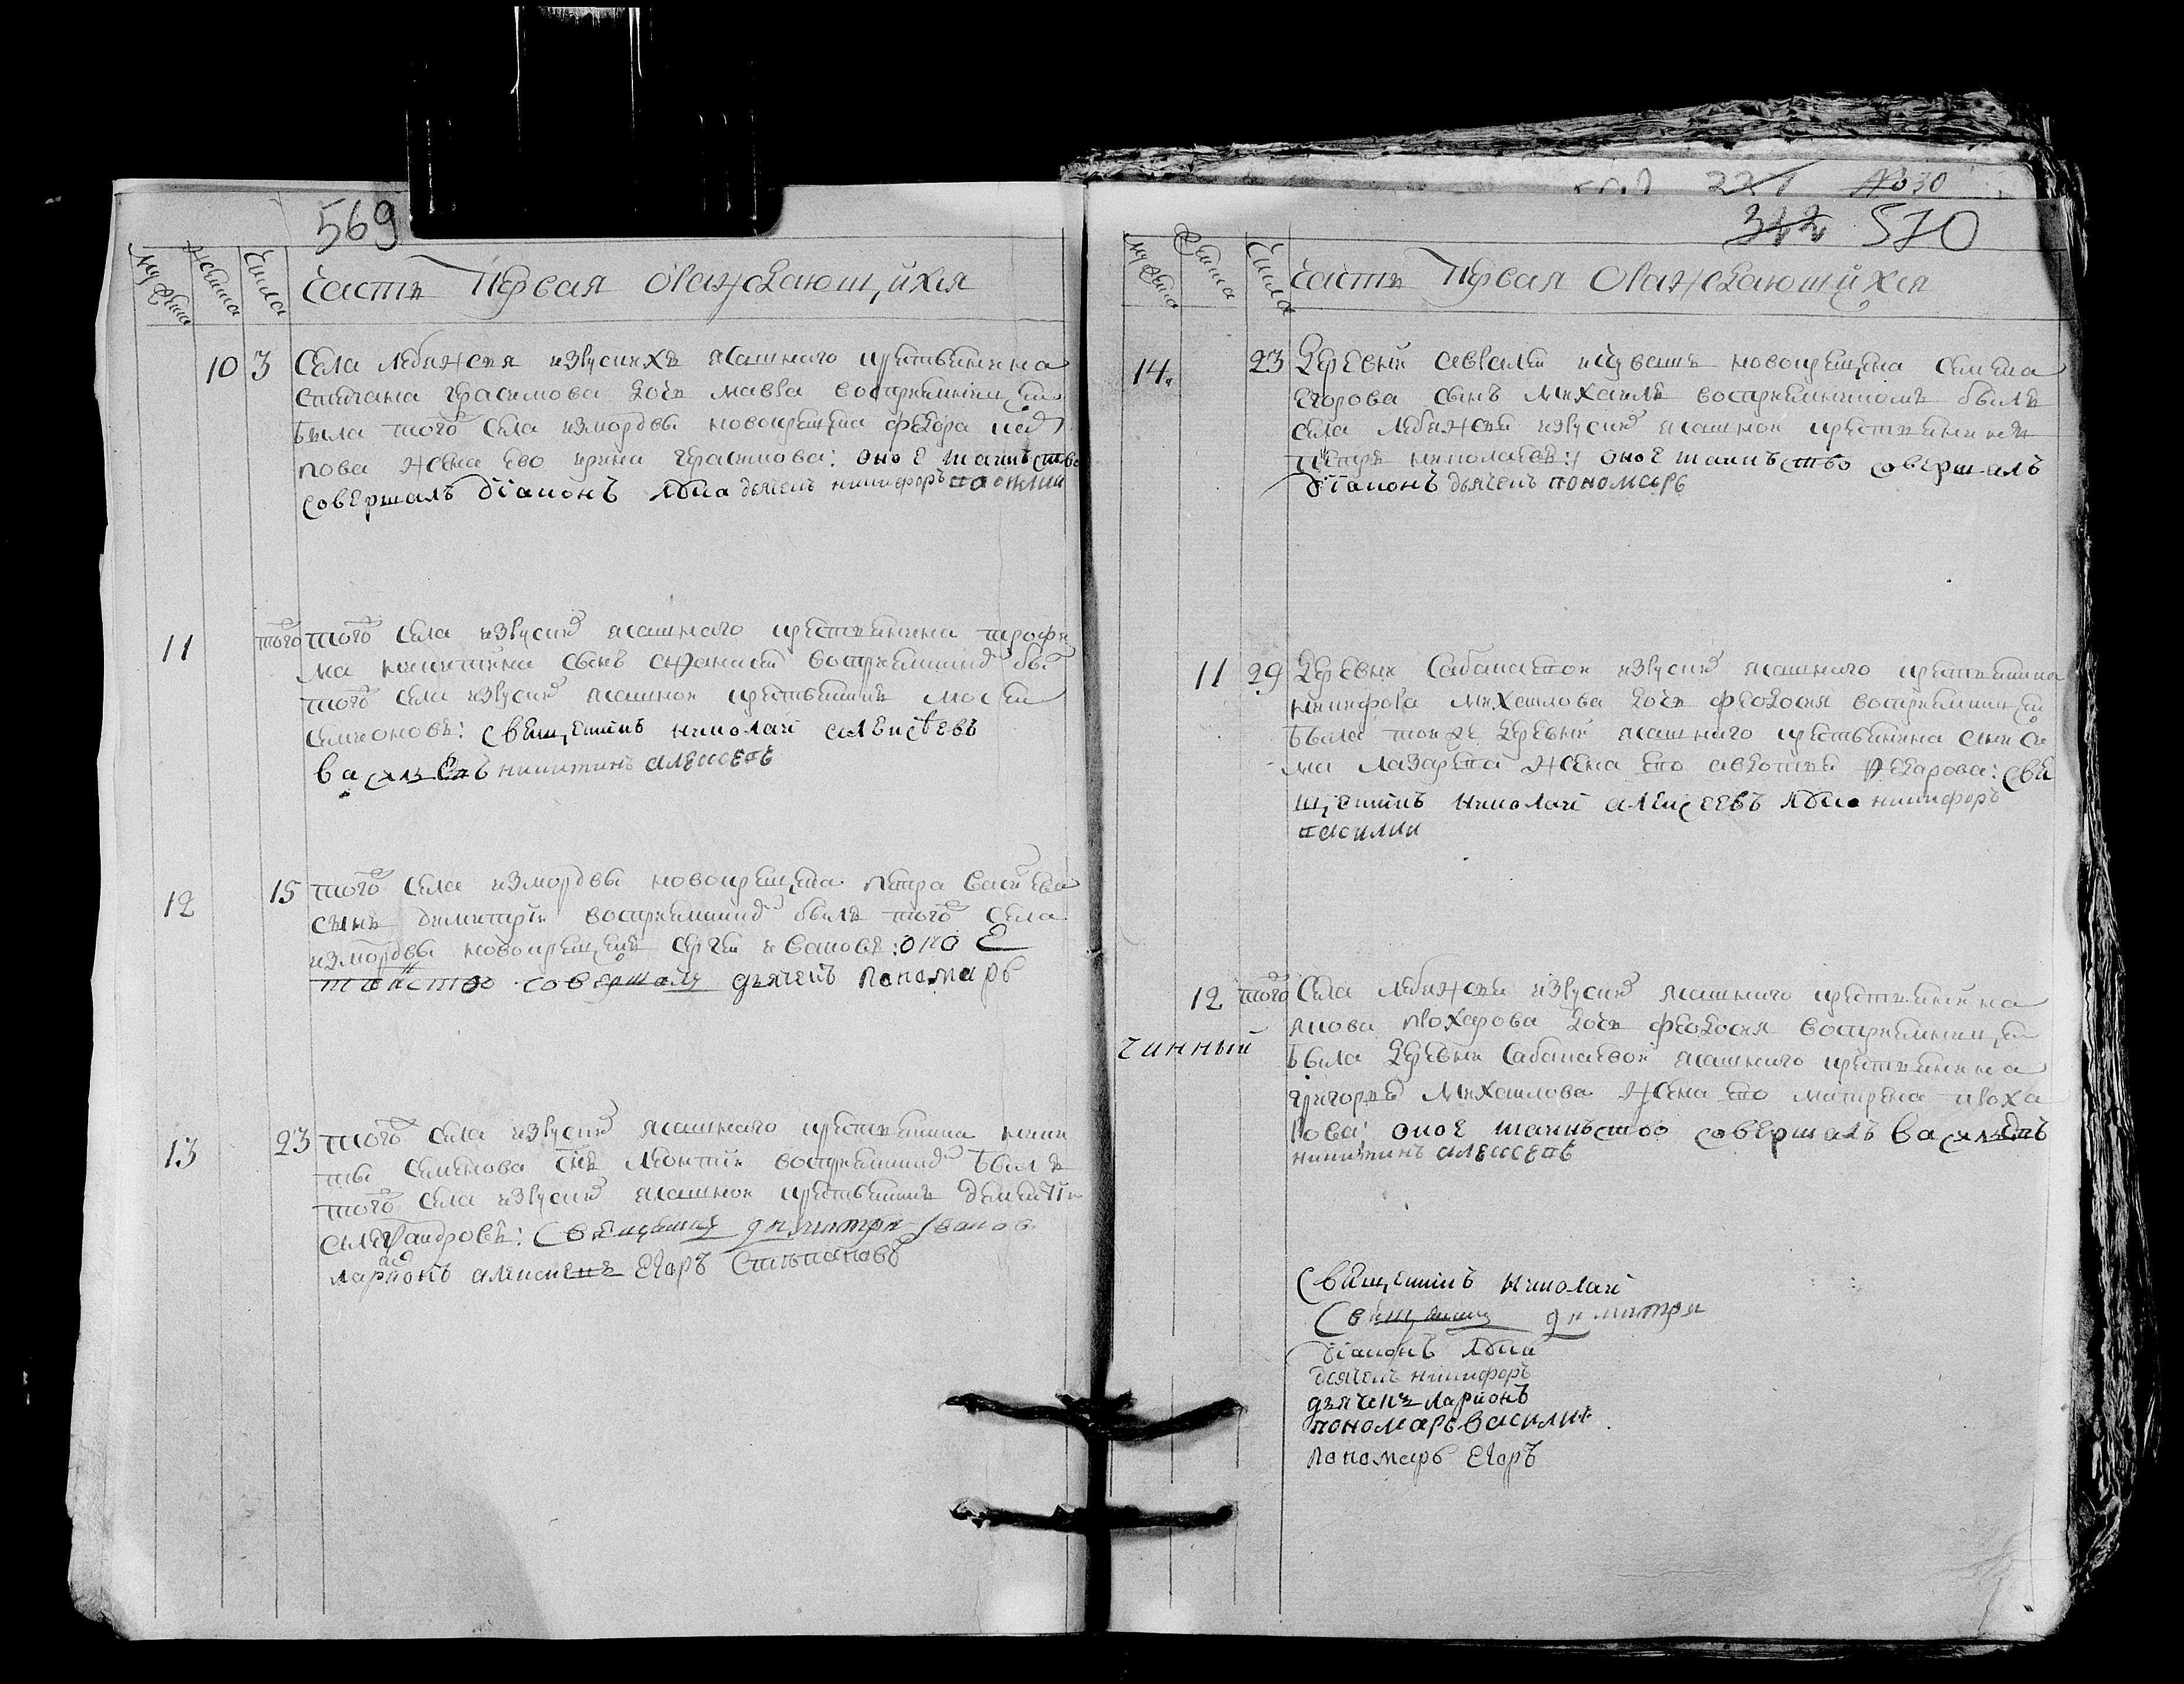 569
Муж:пола
Жен:пола
Числа
Часть Первая о раждающихся
10 3 Села Лебяжья изрусских ясашнаго крестьянина
Степана Герасимова дочь Мавра восприемницею
была того села измордвы новокрещена Федора
пова жена ево Ирина Герасимова: оное таинство
совершалъ діаконъ Яковъ дьячекъ никифоръ пономарь
11 того того села изруских ясашнаго крестьянина трофи
ма никитина сынъ восприемником был
того села изруских ясашной крестьянинъ Мосей
Симионовъ: священникъ николай алексѣевъ
василей никитинъ алексеевъ
12 15 того села измордвы новокрещена Петра
сынъ димитрій восприемником былъ того села
измордвы новокрещенъ сергей ивановъ: оное
таинство совершалъ дьячекъ пономарь
13 23 того села изруских ясашнаго крестьянина ники
ты семенова сынъ Леонтий восприемником былъ
того села изруских ясашной крестьянинъ
александровъ: Священникъ димитри Ивановъ
ларионъ алексеевъ Егоръ Степановъ
№ 30
312 570
Муж:пола
Жен:пола
Числа
Часть Первая о раждающихся
14 23 Деревни ичувашъ новокрещена Семена
Егорова сынъ Михаилъ восприемникомъ былъ
села Лебяжья изруских ясашной крестьянинъ
Петръ николаевъ: оное таинство совершалъ
діаконъ дьячекъ пономарь
11 29 Деревни Сабакаевой изруских ясашнаго крестьянина
никифора Михаилова дочь феодосия восприемницею
была тойже деревни ясашнаго крестьянина
ма Лазарева жена ево авдотья Федорова: свя
щенникъ николай алексеевъ яковъ никифоръ
василии
12 того Села Лебяжья изруских ясашнаго крестьянина
якова Прохорова дочь феодосия восприемницею
была деревни Сабакаевой ясашнаго крестьянина
григорья Михаилова жена ево матрена прохо
рова: оное таинство совершалъ василей
никитинъ алексеевъ
чинный
Священникъ николай
Священникъ димитри
діаконъ Яковъ
дьячекъ никифоръ
дьячекъ ларионъ
пономарь василии
Пономарь Егоръ